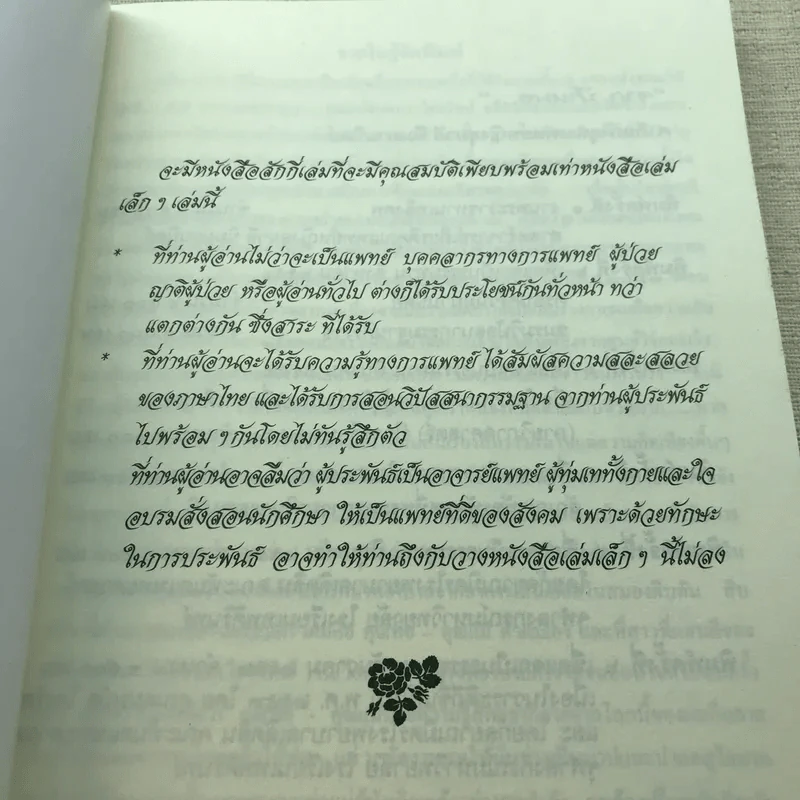 จะมีหนังสือสักกี่เล่มที่จะมีคุณสมบัติเพียบพร้อมเท่าหนังสือเล่ม
เล็ก ๆ เล่มนี้
* ที่ท่านผู้อ่านไม่ว่าจะเป็นแพทย์ บุคคลากรทางการแพทย์ ผู้ป่วย
ญาติผู้ป่วย หรือผู้อ่านทั่วไป ต่างก็ได้รับประโยชน์กันทั่วหน้า ทว่า
แตกต่างกัน ซึ่งสาระ ที่ได้รับ
* ที่ท่านผู้อ่านจะได้รับความรู้ทางการแพทย์ ได้สัมผัสความสละสลวย
ของภาษาไทย และได้รับการสอนวิปัสสนากรรมฐาน จากท่านผู้ประพันธ์
ไปพร้อม ๆ กันโดยไม่ทันรู้สึกตัว
ที่ท่านผู้อ่านอาจลืมว่า ผู้ประพันธ์เป็นอาจารย์แพทย์ ผู้ทุ่มเททั้งกายและใจ
อบรมสั่งสอนนักศึกษา ให้เป็นแพทย์ที่ดีของสังคม เพราะด้วยทักษะ
ในการประพันธ์ อาจทำให้ท่านถึงกับวางหนังสือเล่มเล็ก ๆ นี้ไม่ลง